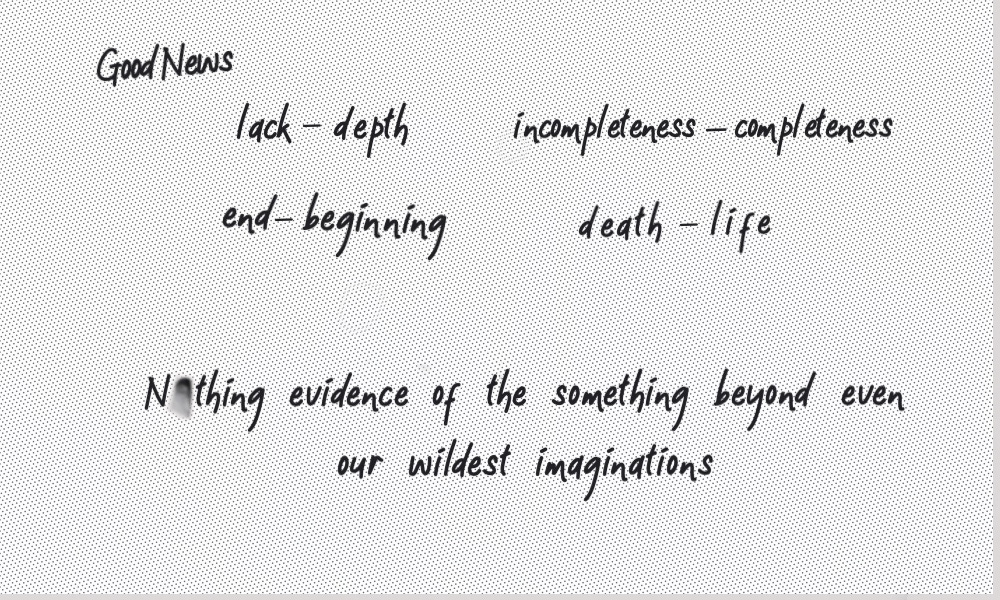 Good News
lack – depth incompleteness – completeness
end – beginning death – life
evidence of the something beyond even
our wildest imaginations